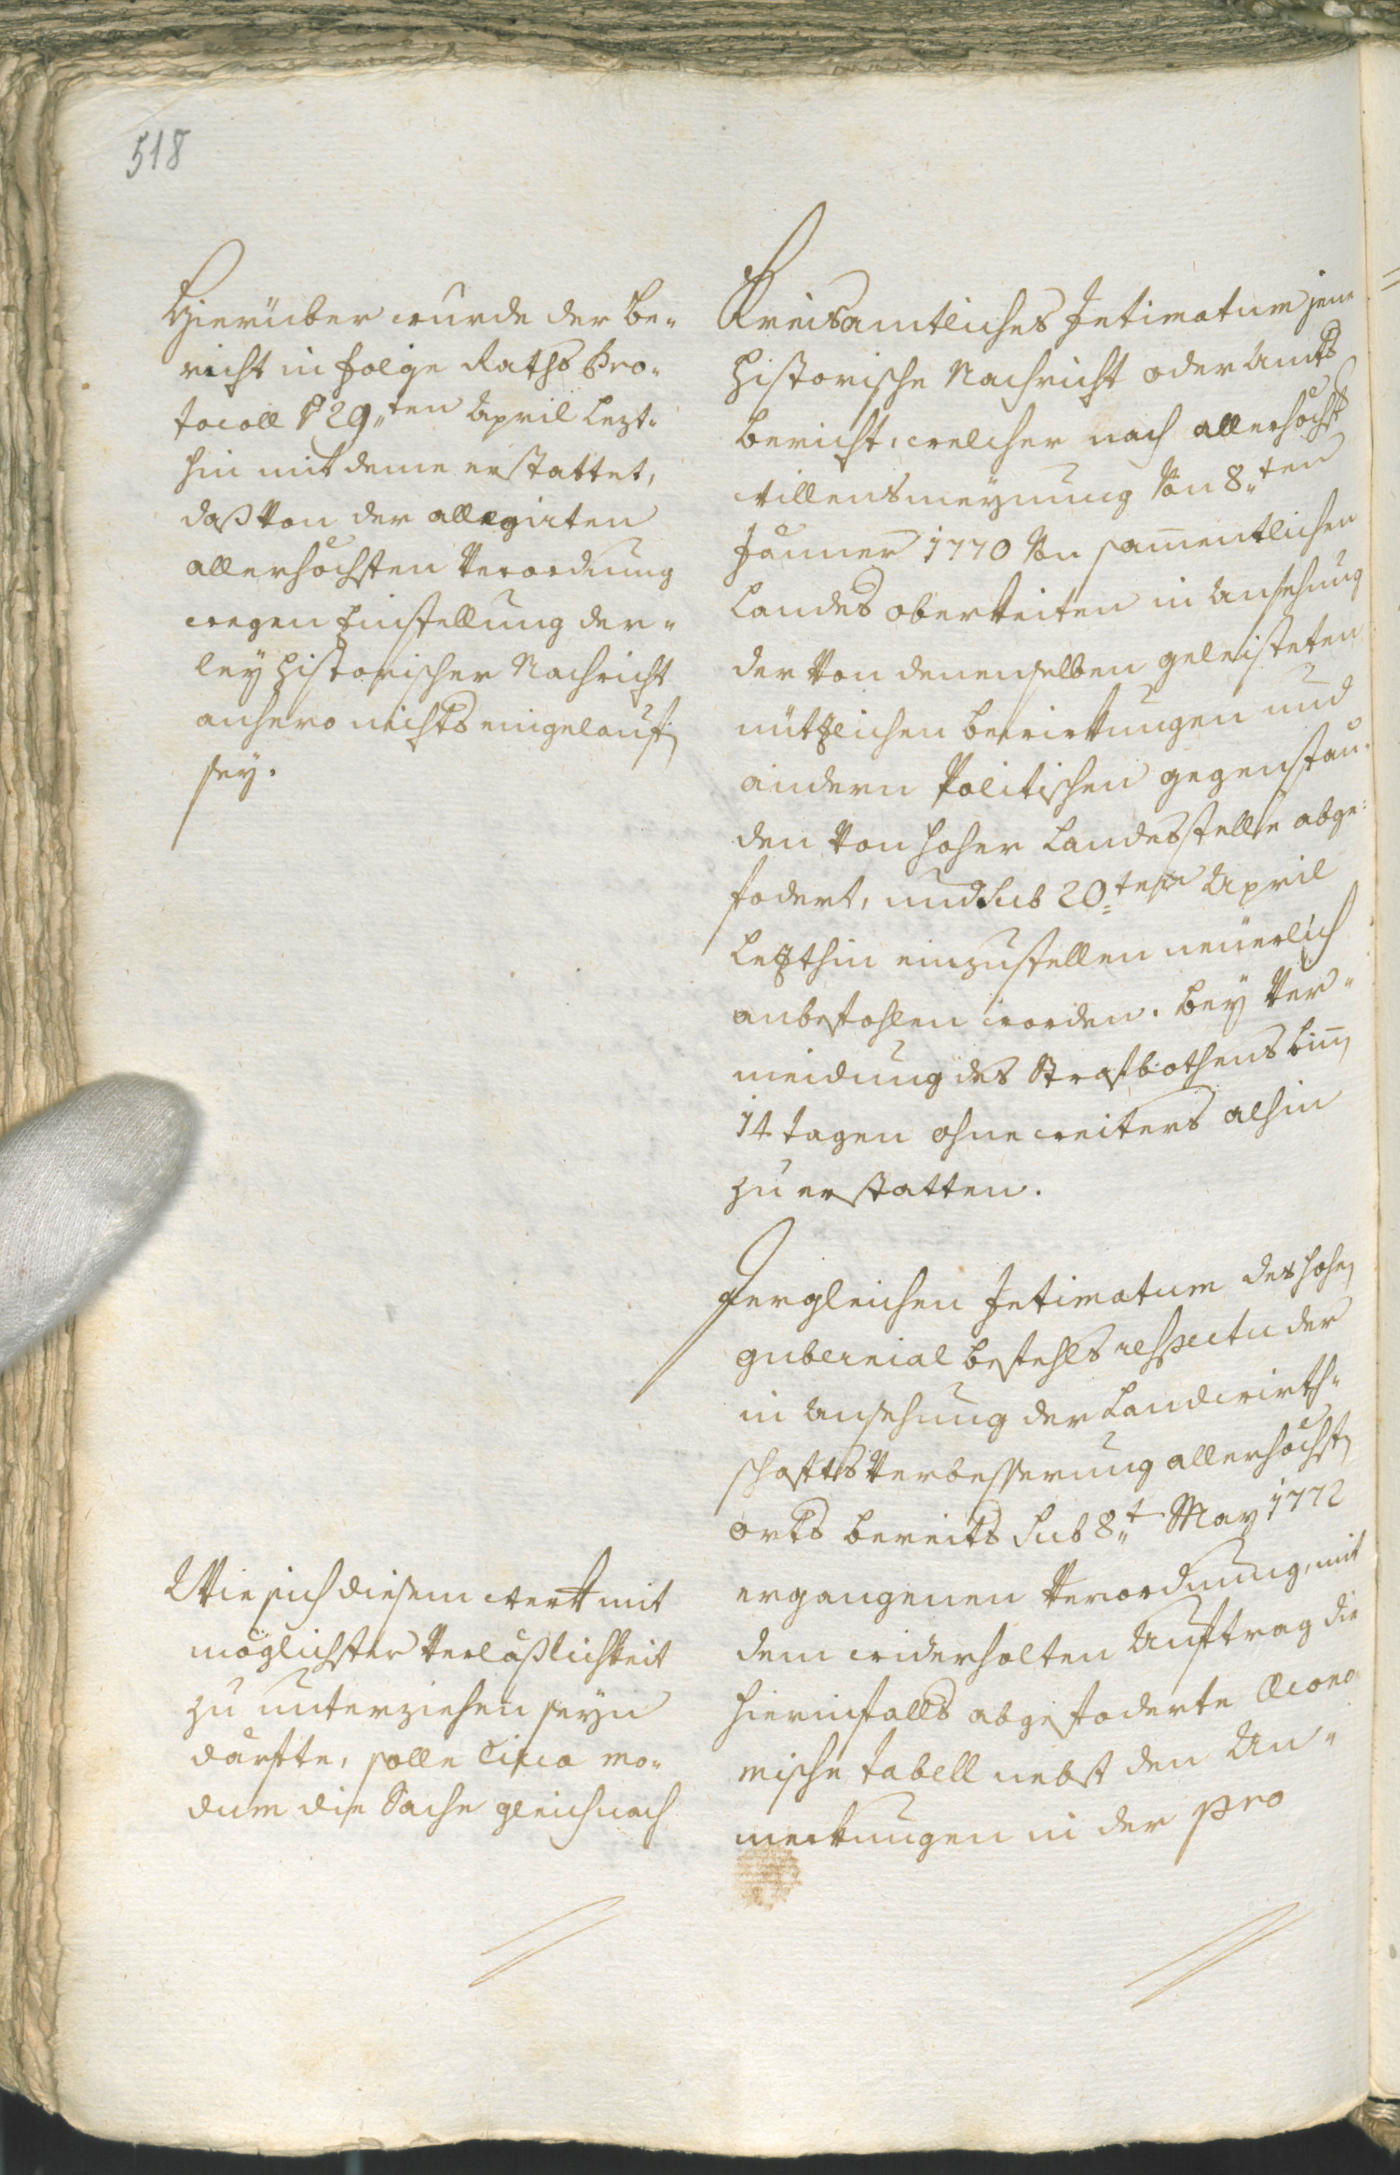 518
Hierüber wurde der Be-
richt in folge Raths Pro-
tocoll 29ten April lezt-
hin mit deme erstattet,
daß von der allegirten
allerhöchsten Verordnung
wegen Einstellung der-
ley historischer Nachricht
anhero nichts eingelauf
sey.
Wie sich diesem werk mit
möglichster Verläßlichkeit
zu unterziehen seyn
dürfte, solle Circa mo-
dum die Sache gleich nach
Kreisamtliches Intimatum jene
historische Nachricht oder Amts
bericht, welcher nach allerhöchst
willensmeynung Von 8ten
Jänner 1770 Von sam̄entlichen
Landes oberkeiten in Ansehung
der Von denenselben geleisteten
nützlichen bewirkungen und
andern Politischen gegenstän-
den Von hoher Landesstelle abge-
fodert, und Sub 20ten April
Letzthin einzustellen neüerlich
anbefohlen worden. bey Ver-
meidung des Strafbothens biñ
14 tagen ohne weiters alhin
zu erstatten.
Dergleichen Intimatum des hohe
gubernial befehls respectu der
in Ansehung der Landwirth-
schafts Verbesserung allerhöchst
orts bereits Sub 8t May 1772
ergangenen Verordnung, mit
dem widerholten Auftrag die
hierinfalls abgefoderte Œcono
mische tabell nebst den An-
merkungen in der pro